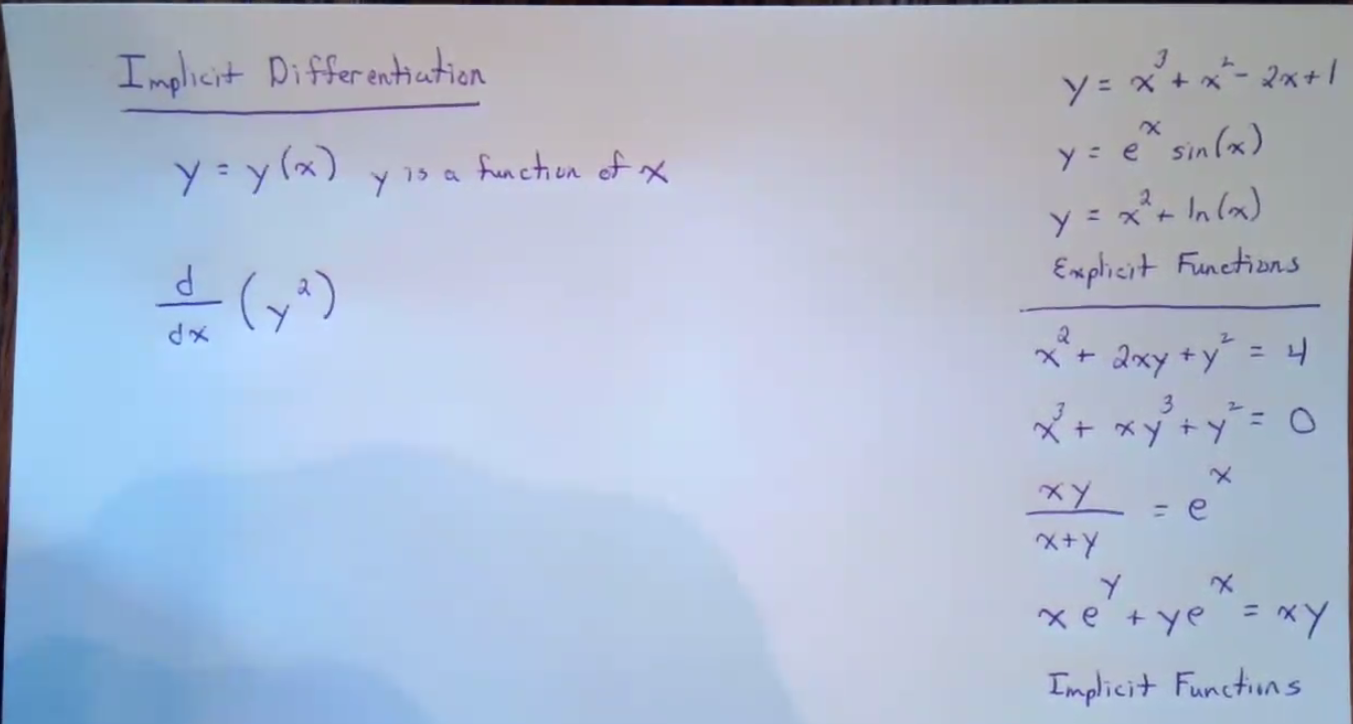 Implicit Differentiation
y = y(x) y is a function of x
d/dx (y²)
y = x³ + x² - 2x + 1
y = eˣ sin(x)
y = x² + ln(x)
Explicit Functions
x² + 2xy + y² = 4
x³ + xy³ + y² = 0
xy/(x+y) = eˣ
xeʸ + yeˣ = xy
Implicit Functions